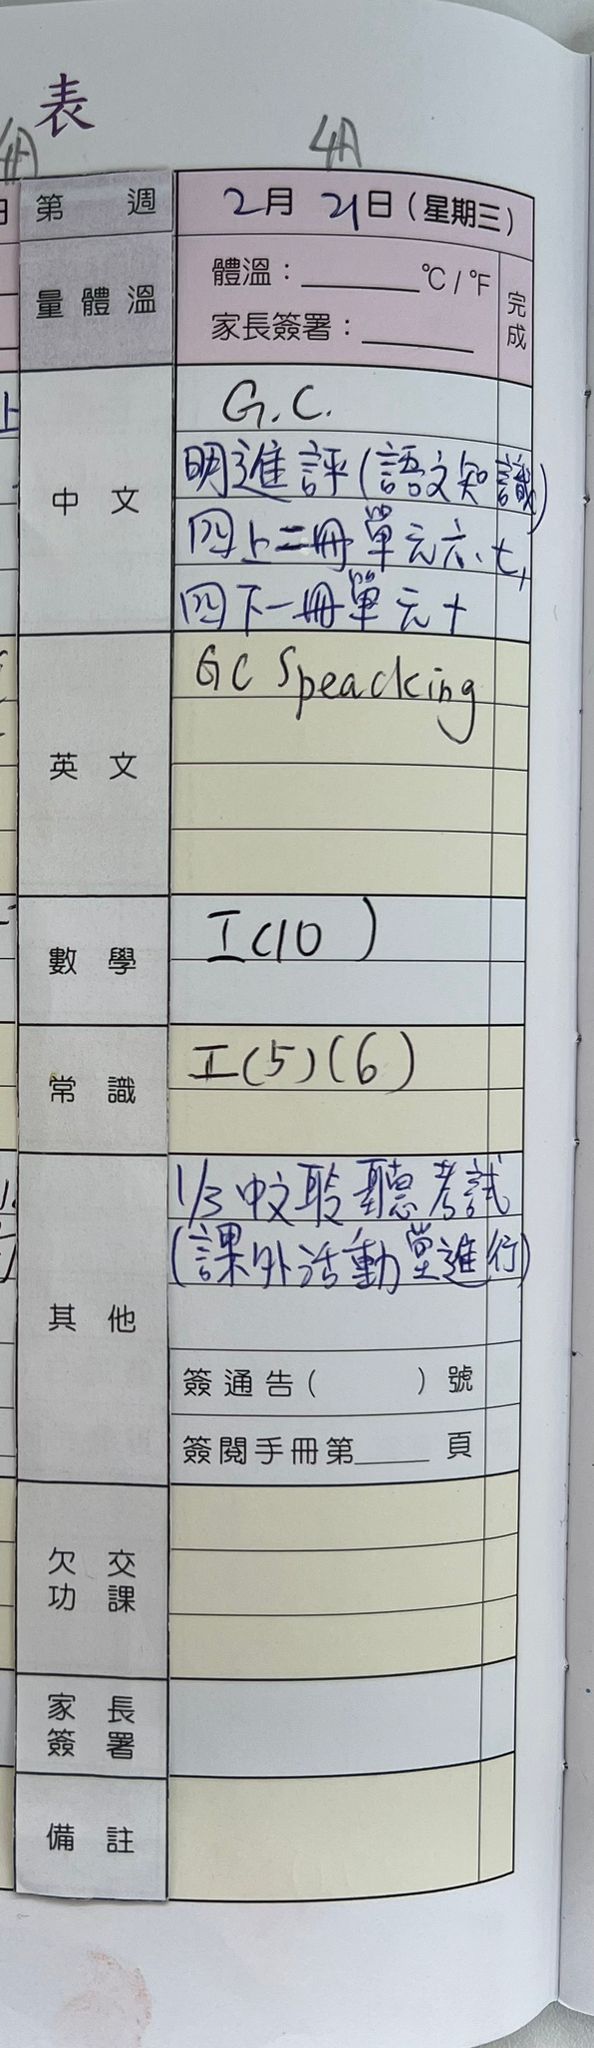 表
4A
第 週
2月 21日(星期三)
量體溫
體溫：______°C/°F
家長簽署：______
完成
中文
G.C.
明進評(語文知識)
四上二冊單元六、七,
四下一冊單元十
英文
GC Speacking
數學
I(10)
常識
I(5)(6)
其他
1/3 中文聆聽考試
(課外活動堂進行)
簽通告( )號
簽閱手冊第____頁
欠交功課
家長簽署
備註